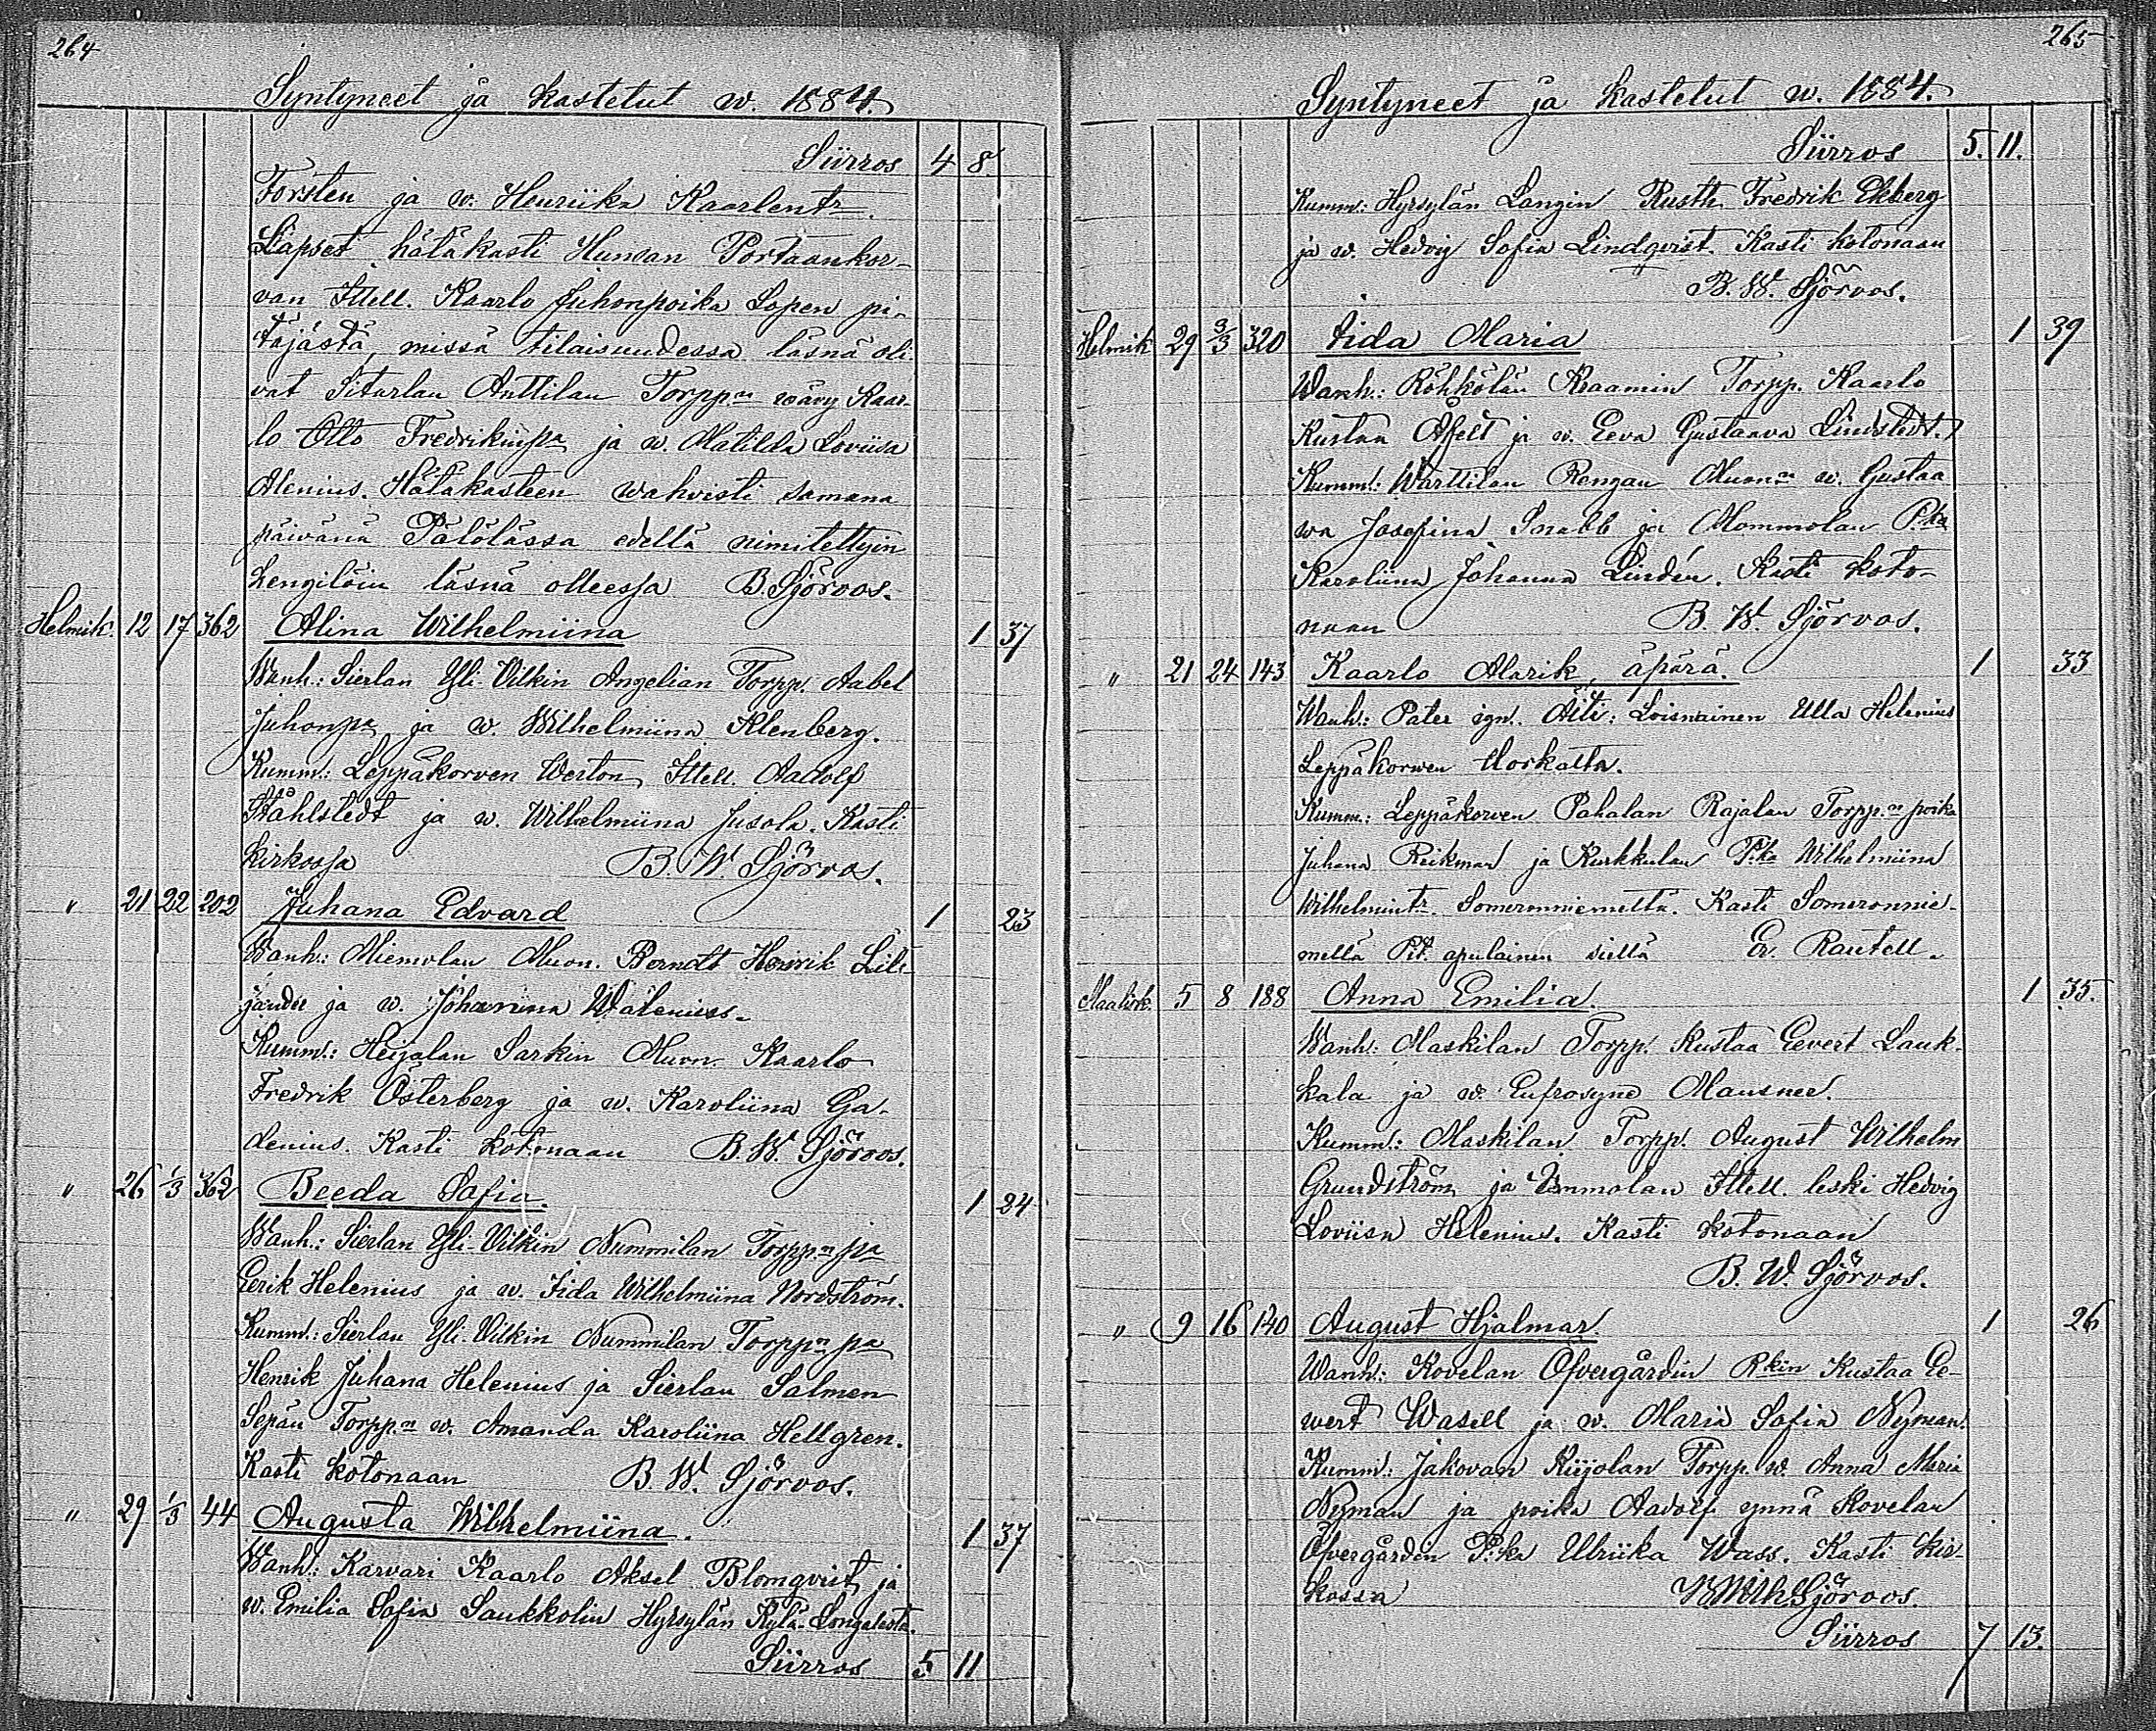 264
Syntyneet ja kastetut w. 1884.
Siirros 4 8
Forsten ja w. Henriika Kaarlentr.
Lapset hätäkasti Hunsan Portaankor-
van Ittell. Kaarlo Juhonpoika Lopen pi-
täjästä, missä tilaisuudessa läsnä oli-
vat Siturlan Anttilan Torpp:n vävy Kaar-
lo Otto Fredrikinpa ja w. Matilda Loviisa
Alenius. Hätäkasteen wahvisti samana
päivänä Pälölässä edellä nimitettyin
hengilöin läsnä olleessa B. Sjöroos.
Helmik. 12 17 362 Alina Wilhelmiina 1 37
Wanh.: Sierlan Yli-Vilkin Angelian Torpp. Aabel
Juhonpa ja w. Wilhelmiina Alenberg.
Kumm.: Leppäkorven Werton Ittell. Aadolf
Ståhlstedt ja w. Wilhelmiina Jusola. Kasti
kirkossa B. W. Sjöroos.
" 21 22 202 Juhana Edvard 1 23
Wanh.: Miemolan Muon. Berndt Henrik Lili-
jander ja w. Johanna Walenius.
Kumm.: Heijalan Sarkin Muon. Kaarlo
Fredrik Österberg ja w. Karoliina Ga-
denius. Kasti kotonaan B. W. Sjöroos.
" 26 1/3 362 Beeda Sofia. 1 24
Wanh.: Sierlan Yli-Vilkin Nummilan Torpp:n pa
Eerik Helenius ja w. Iida Wilhelmiina Nordström.
Kumm.: Sierlan Yli-Vilkin Nummilan Torpp:n pa
Henrik Juhana Helenius ja Sierlan Salmen
Sepän Torpp:n w. Amanda Karoliina Hellgren.
Kasti kotonaan B. W. Sjöroos.
" 29 1/3 44 Augusta Wilhelmiina. 1 37
Wanh.: Karvari Kaarlo Aksel Blomqvist ja
w. Emilia Sofia Saukkolin Hyrsylän Kylä-Longalasta.
Siirros 5 11
265
Syntyneet ja kastetut w. 1884.
Siirros 5. 11.
Kumm.: Hyrsylän Langin Rusth. Fredrik Ekberg
ja w. Hedvig Sofia Lindqvist. Kasti kotonaan
B. W. Sjöroos.
Helmik 29 9/3 320 Iida Maria 1 39
Wanh.: Röhkölän Kraamin Torpp. Kaarlo
Kustaa Åfelt ja w. Eeva Gustaava Lindstedt.
Kumm.: Warttilan Rengan Muon:n w. Gustaa-
va Josefina Snabb ja Mommolan P:ka
Karoliina Johanna Lindén. Kasti koto-
naan B. W. Sjöroos.
" 21 24 143 Kaarlo Alarik, äpärä. 1 33
Wanh.: Pater ign. Äiti: Loisnainen Ulla Helenius
Leppäkorwen Uorkatta.
Kumm.: Leppäkorwen Pahalan Rajalan Torpp:n poika
Juhana Reikman ja Kurkkulan P:ka Wilhelmiina
Wilhelmintr. Someronniemeltä. Kasti Someronnie-
mellä Pit. apulainen siellä Er. Rautell.
Maalisk. 5 8 188 Anna Emilia. 1 35.
Wanh.: Maskilan Torpp. Kustaa Eevert Lauk-
kala ja w. Eufrosyne Mausner.
Kumm.: Maskilan Torpp. August Wilhelm
Grundström ja Ummolan Ittell. leski Hedvig
Loviisa Helenius. Kasti kotonaan
B. W. Sjöroos.
" 9 16 140 August Hjalmar. 1 26
Wanh.: Kovelan Öfvergårdin R:kin Kustaa Ee-
wert Wasell ja w. Maria Sofia Nyman.
Kumm.: Jakovan Riijolan Torpp. w. Anna Maria
Nyman ja poika Aadolf ynnä Kovelan
Öfvergården P:ka Ulriika Wass. Kasti kir-
kossa B Wilh Sjöroos.
Siirros 7 13.